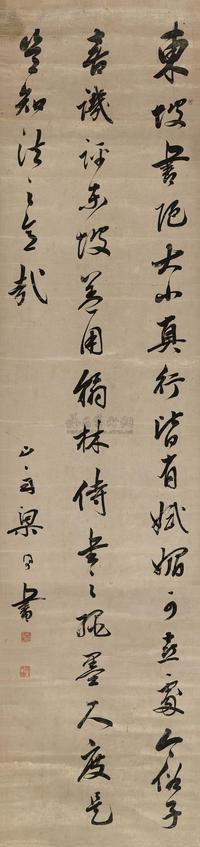 東坡書隨大小真行皆有嫵媚可喜處今俗子
喜譏評東坡蓋用翰林侍書之繩墨尺度是
豈知法之意哉
山舟梁同書